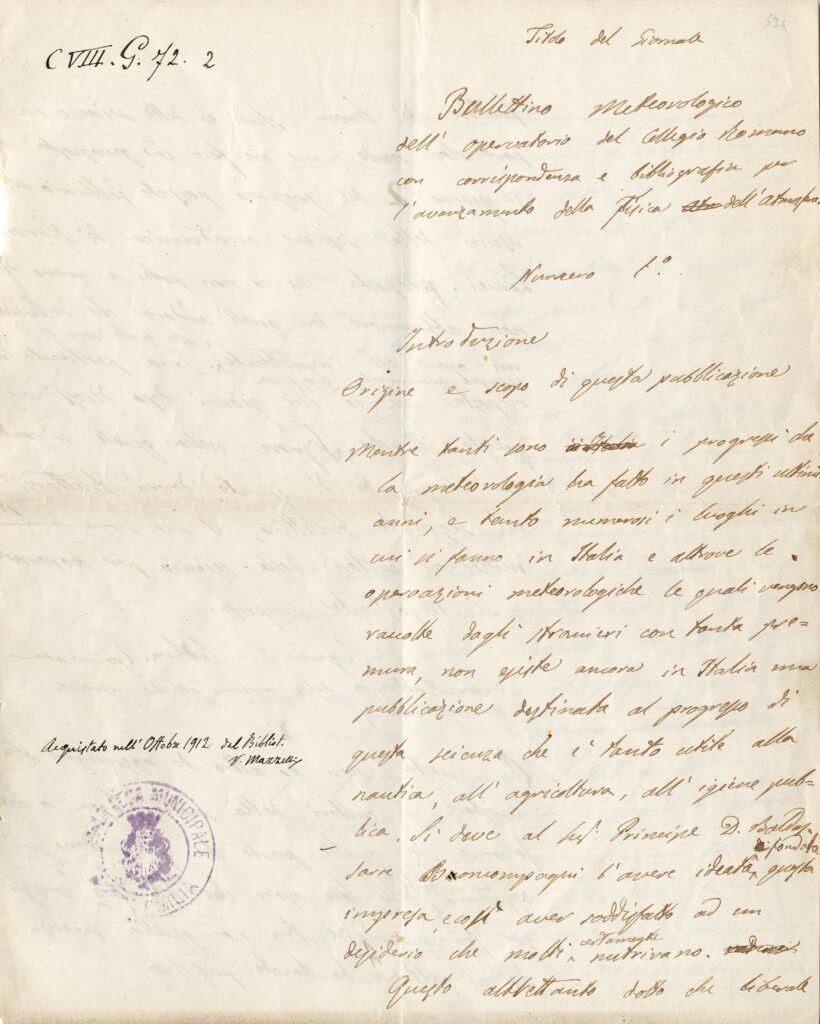 534
C VIII. G. 72. 2
Titolo del Giornale
Bullettino Meteorologico
dell' osservatorio del Collegio Romano
con corrispondenza e bibliografia per
l'avanzamento della Fisica dell'atmosfe.
Numero 1.°
Introduzione
Origine e scopo di questa pubblicazione
Mentre tanti sono in Italia i progressi che
la meteorologia ha fatto in questi ultimi
anni, e tanto numerosi i luoghi in
cui si fanno in Italia e altrove le
osservazioni meteorologiche le quali vengono
raccolte dagli stranieri con tanta pre-
mura, non esiste ancora in Italia una
pubblicazione destinata al progresso di
questa scienza che è tanto utile alla
nautica, all' agricoltura, all' igiene pub-
blica. Si deve al Principe D. Baldas-
e fondata
sarre Buoncompagni l'avere ideata questa
impresa, e così aver soddisfatto ad un
certamente
desiderio che molti nutrivano.
Questo altrettanto dotto che liberale
Acquistato nell' Ottobre 1912 dal Bibliot.
V. Mazzelli
MUNICIPALE